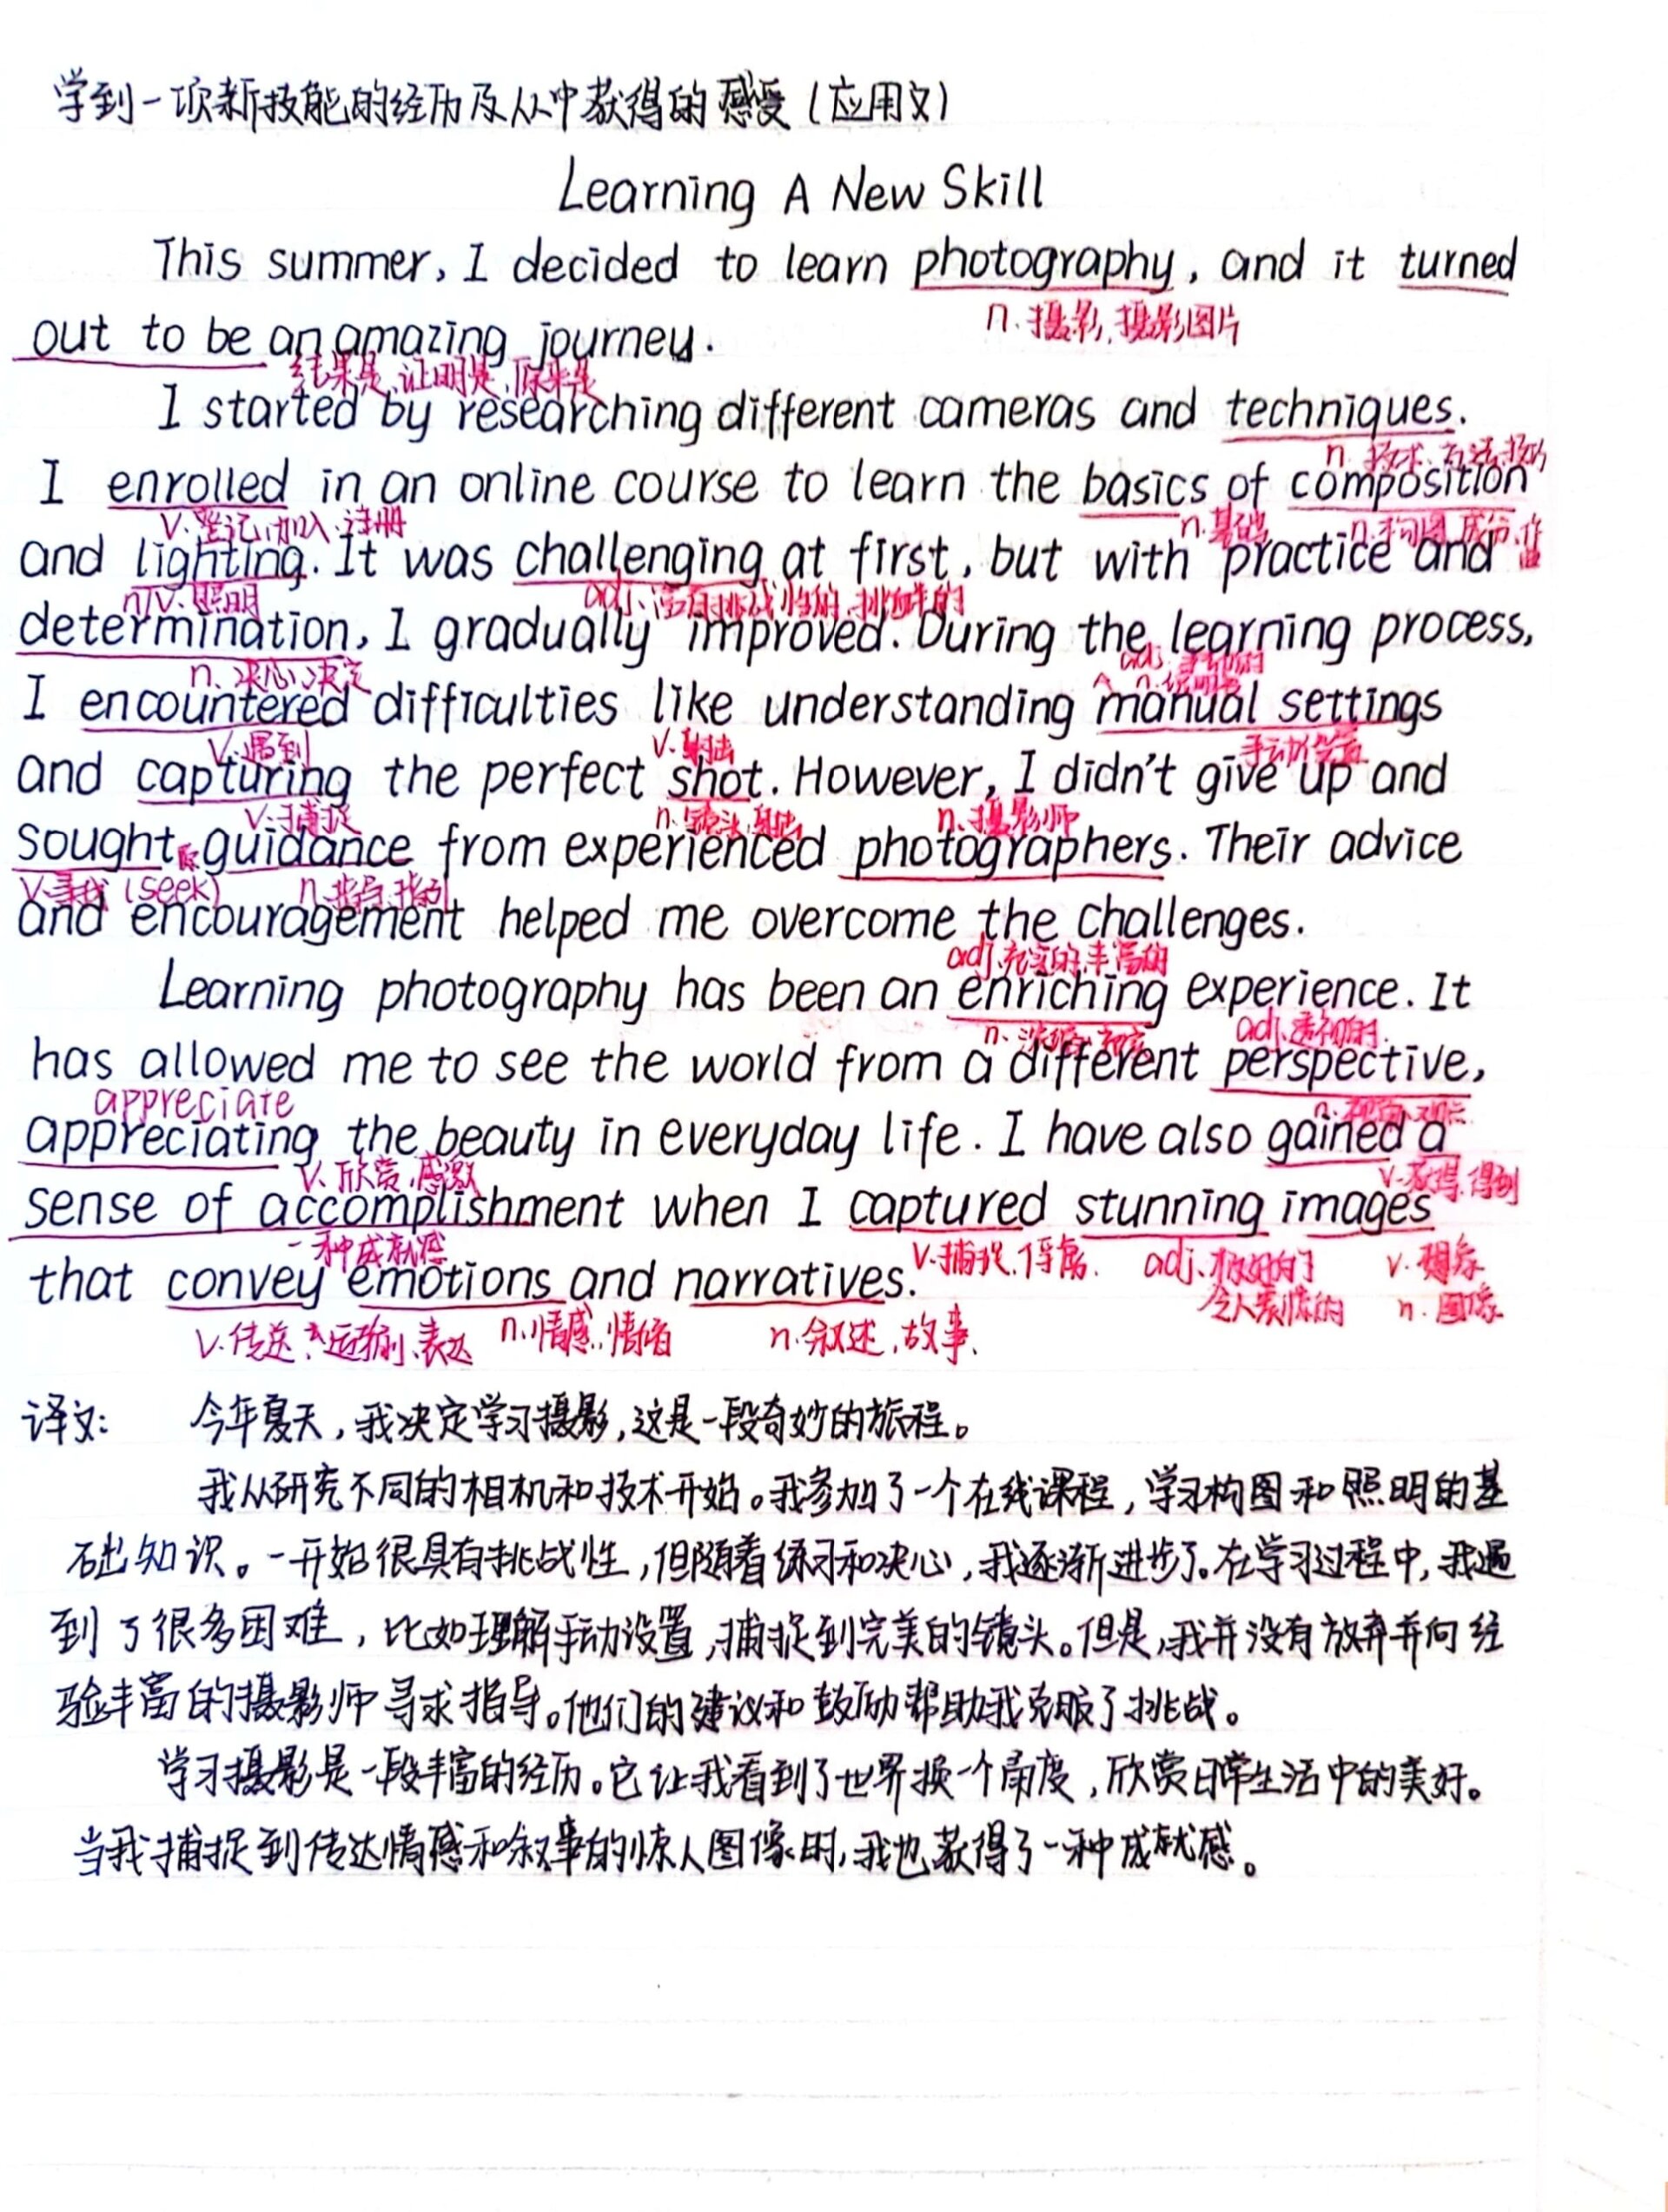 学到一项新技能的经历及从中获得的感受(应用文)
Learning A New Skill
This summer, I decided to learn photography, and it turned
n.摄影,摄影图片
out to be an amazing journey.
结果是、证明是、原来是
I started by researching different cameras and techniques.
n.技术、方法、技巧
I enrolled in an online course to learn the basics of composition
v.登记,加入、注册
n.基础
n.构图,成份,作曲
and lighting. It was challenging at first, but with practice and
n/v.照明
adj、富有挑战性的、挑衅的
determination, I gradually improved. During the learning process,
n、决心、决定
I encountered difficulties like understanding manual settings
v.遇到
手动设置
and capturing the perfect shot. However, I didn't give up and
v.射击
v.捕捉
n.镜头,射击
n、摄影师
sought guidance from experienced photographers. Their advice
v.寻找(seek)
n.指导、指引
and encouragement helped me overcome the challenges.
adj.充实的,丰富的
Learning photography has been an enriching experience. It
adj.透视的
has allowed me to see the world from a different perspective,
appreciate
appreciating the beauty in everyday life. I have also gained a
v、欣赏,感激
v.获得、得到
sense of accomplishment when I captured stunning images
一种成就感
v.捕捉、俘虏.
adj、极好的
令人震惊的
v.想象
n.图像
that convey emotions and narratives.
n.情感、情绪
n.叙述,故事、
译文: 今年夏天,我决定学习摄影,这是一段奇妙的旅程。
我从研究不同的相机和技术开始。我参加了一个在线课程,学习构图和照明的基
础知识。一开始很具有挑战性,但随着练习和决心,我逐渐进步了。在学习过程中,我遇
到了很多困难,比如理解手动设置,捕捉到完美的镜头。但是,我并没有放弃并向经
验丰富的摄影师寻求指导。他们的建议和鼓励帮助我克服了挑战。
学习摄影是一段丰富的经历。它让我看到了世界换一个角度,欣赏日常生活中的美好。
当我捕捉到传达情感和叙事的惊人图像时,我也获得了一种成就感。